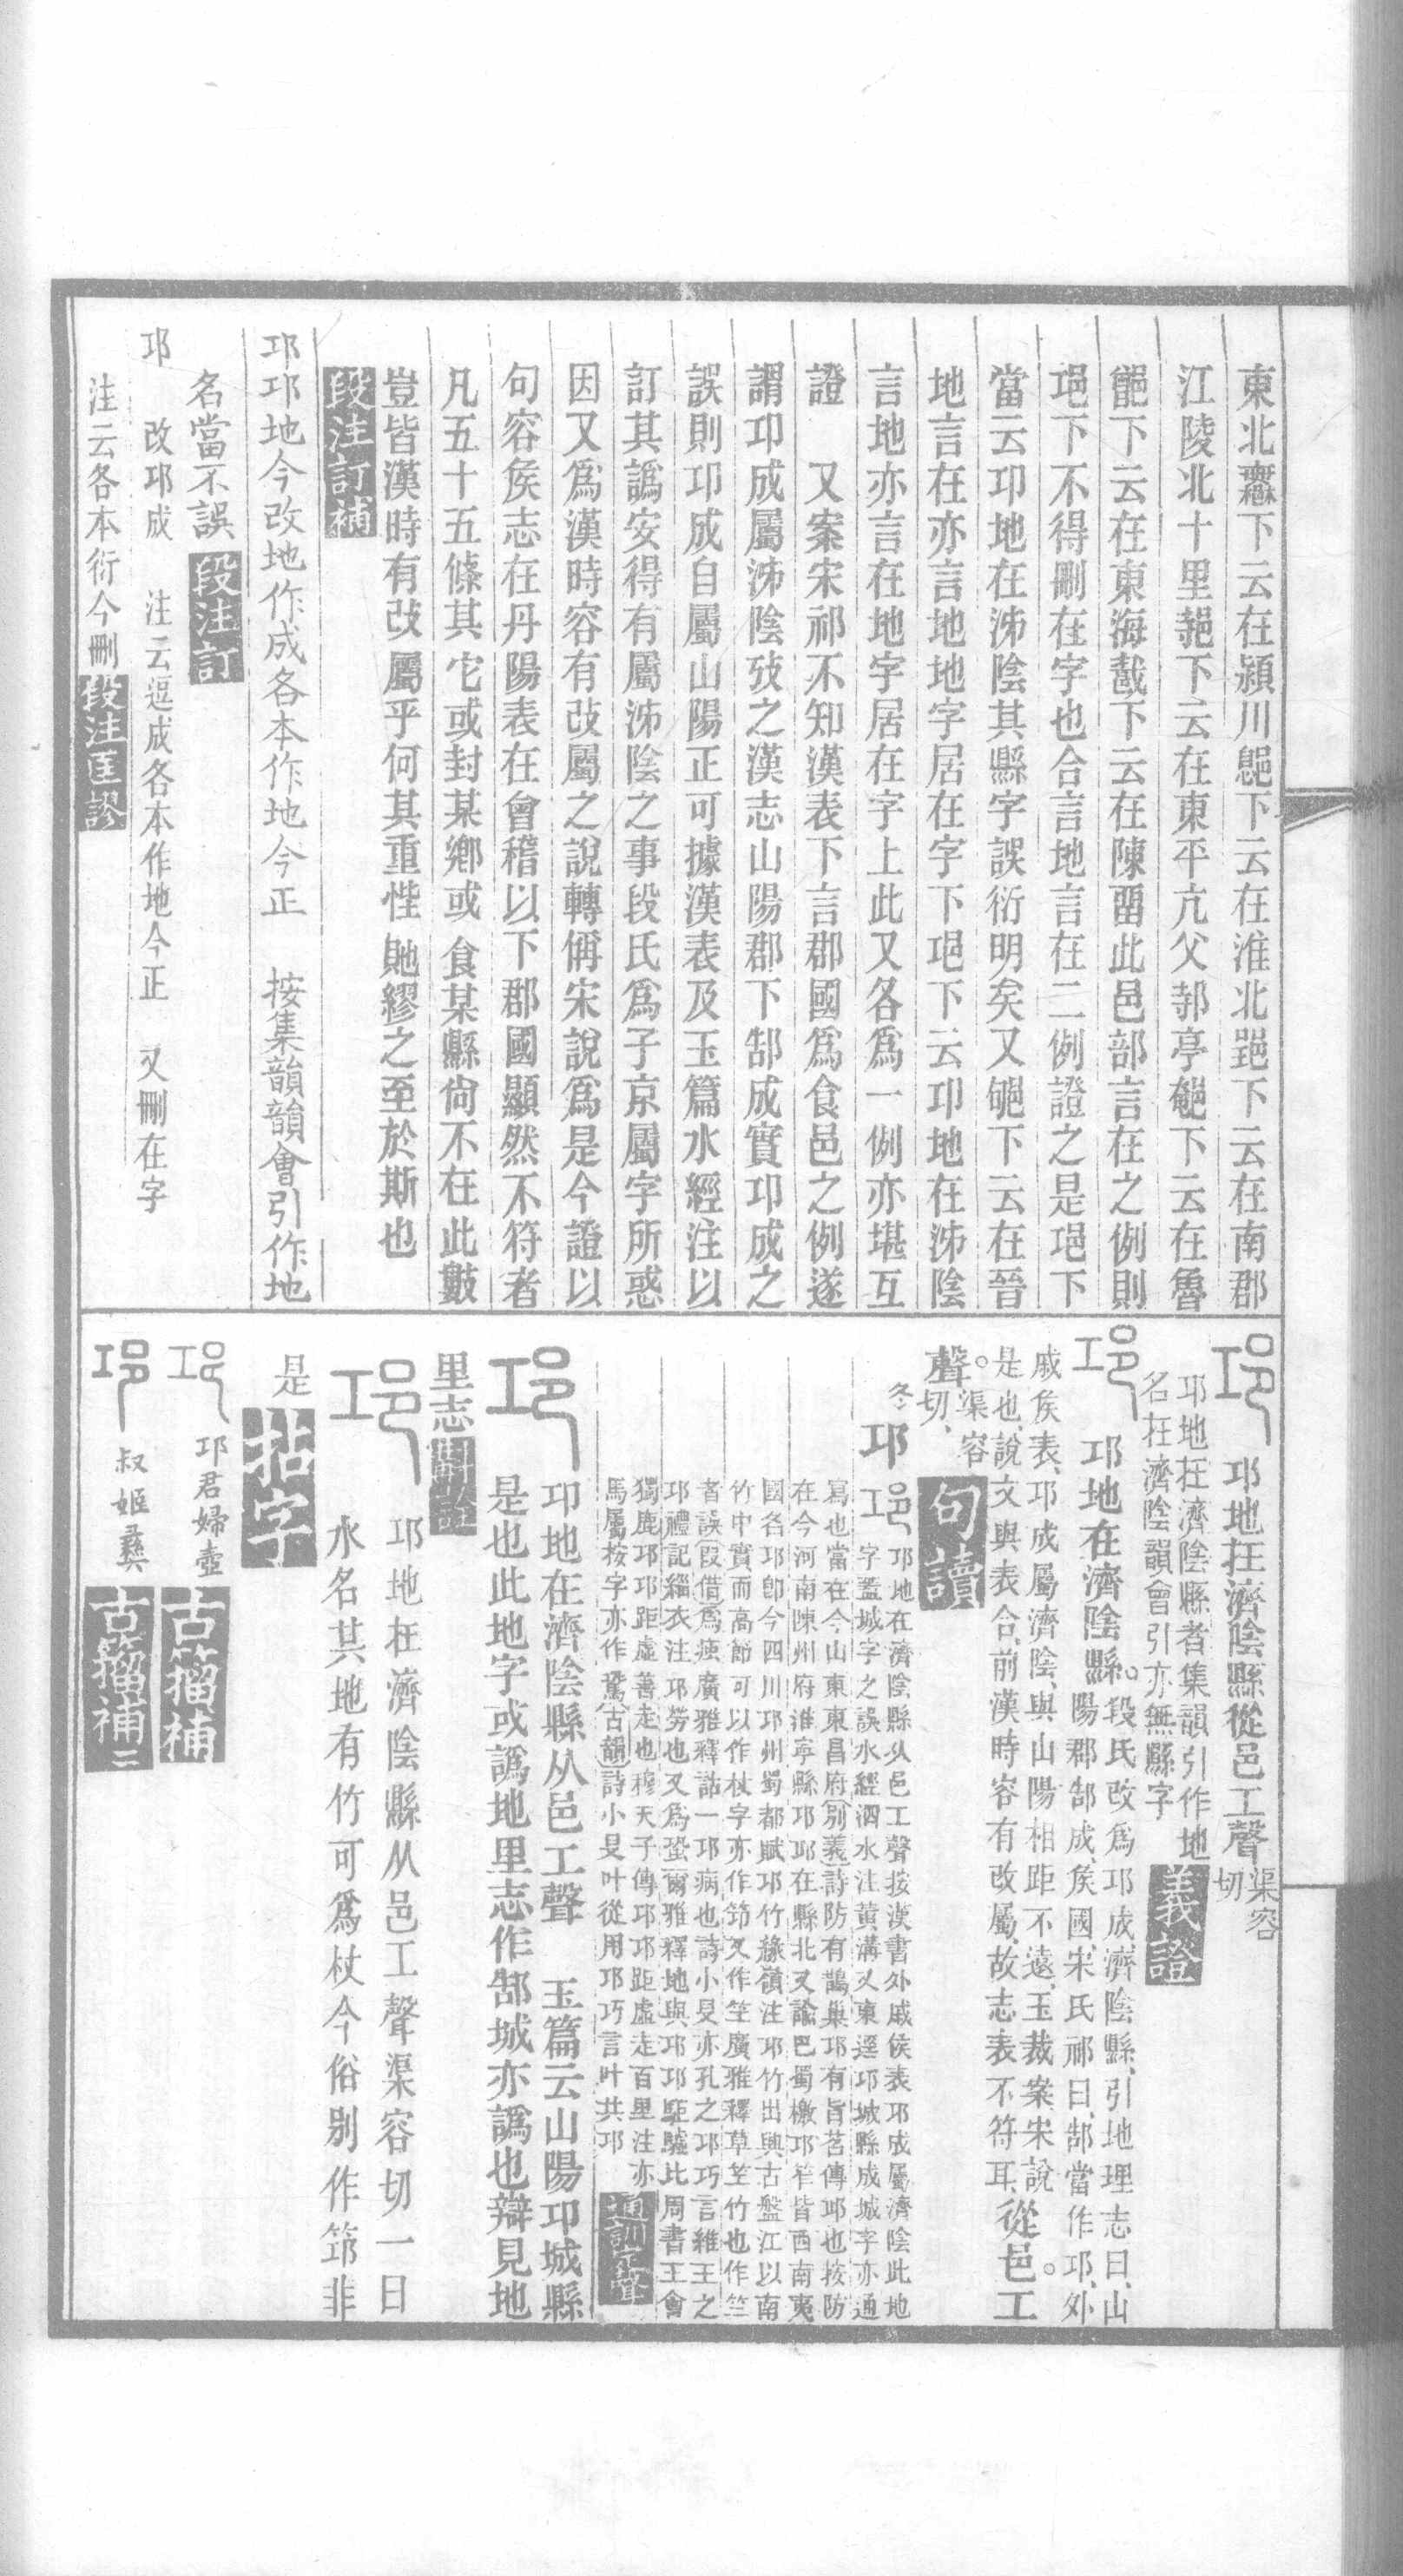 東北下云在潁川下云在淮北下云在南郡
江陵北十里下云在東平亢父邿亭下云在魯
下云在東海下云在陳畱此邑部言在之例則
下不得刪在字也合言地言在二例證之是下
當云邛地在泲陰其縣字誤衍明矣又下云在晉
地言在亦言地地字居在字下下云邛地在泲陰
言地亦言在地字居在字上此又各爲一例亦堪互
證　又案宋祁不知漢表下言郡國爲食邑之例遂
謂邛成屬泲陰攷之漢志山陽郡下郜成實邛成之
誤則邛成自屬山陽正可據漢表及玉篇水經注以
訂其譌安得有屬泲陰之事段氏爲子京屬字所惑
因又爲漢時容有改屬之說轉偁宋說爲是今證以
句容侯志在丹陽表在會稽以下郡國顯然不符者
凡五十五條其它或封某鄉或食某縣尙不在此數
豈皆漢時有改屬乎何其重悂貤繆之至於斯也
段注訂補
邛邛地今改地作成各本作地今正　按集韻韻會引作地
名當不誤 段注訂
邛　改邛成　注云逗成各本作地今正　又刪在字
注云各本衍今刪 段注匡謬
邛地在濟陰縣從邑工聲 渠容切
邛地在濟陰縣者集韻引作地
名在濟陰韻會引亦無縣字 義證
邛地在濟陰縣。段氏改爲邛成濟陰縣、引地理志曰、山
陽郡郜成、侯國、宋氏祁曰、郜當作邛、外
戚侯表、邛成屬濟陰、與山陽相距不遠、玉裁案、宋說
是也、說文與表合、前漢時容有改屬、故志表不符耳、從邑。工
聲。渠容切、 句讀
冬 邛
邛地在濟陰縣从邑工聲按漢書外戚侯表邛成屬濟陰此地
字蓋城字之誤水經泗水注黃溝又東逕邛城縣成城字亦通
寫也當在今山東東昌府（別義）詩防有鵲巢邛有旨苕傳邛也按防
在今河南陳州府淮寧縣邛邛在縣北又諭巴蜀檄邛筰皆西南夷
國名邛卽今四川邛州蜀都賦邛竹緣嶺注邛竹出興古盤江以南
竹中實而高節可以作杖字亦作筇又作𥫡廣雅釋草𥫡竹也作竺
者誤（叚借）爲㾤廣雅釋詁一邛病也詩小旻亦孔之邛巧言維王之
邛禮記緇衣注邛勞也又爲蛩爾雅釋地與邛邛駏驉比周書王會
獨鹿邛邛距虛善走也穆天子傳邛邛距虛走百里注亦
馬屬按字亦作蛩（古韻）詩小旻叶從用邛巧言叶共邛 通訓定聲
邛地在濟陰縣从邑工聲　玉篇云山陽邛城縣
是也此地字或譌地里志作郜城亦譌也辯見地
里志 斠詮
邛地在濟陰縣从邑工聲渠容切一曰
水名其地有竹可爲杖今俗別作筇非
是 拈字
邛君婦壺 古籀補
叔姬彝 古籀補二